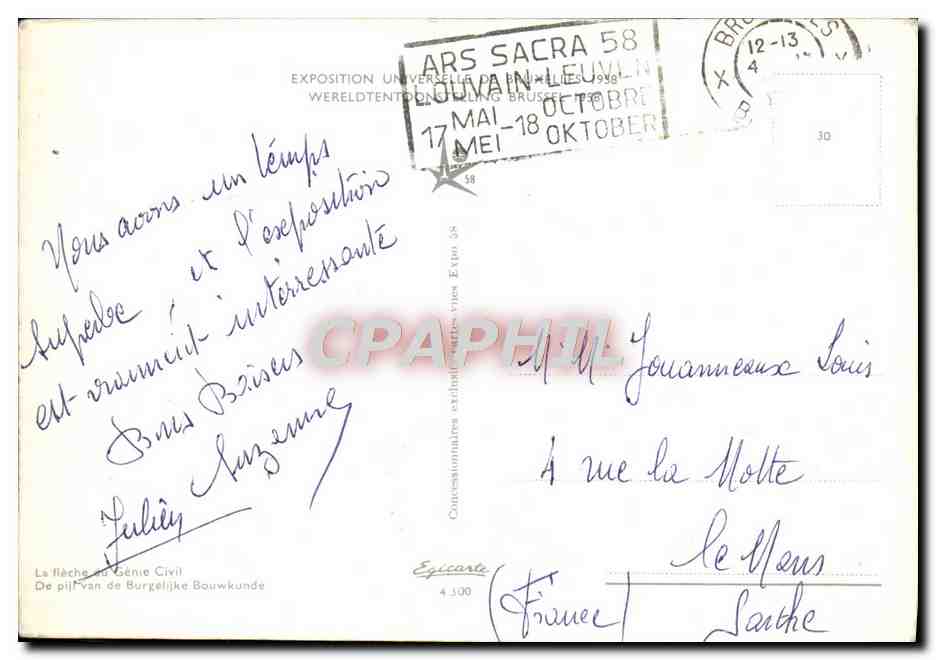 EXPOSITION UNIVERSELLE DE BRUXELLES 1958
WERELDTENTOONSTELLING BRUSSEL 1958
ARS SACRA 58
LOUVAIN-LEUVEN
17 MAI MEI -18 OCTOBRE OKTOBER
12-13
4
58
30
Nous avons un temps
superbe, et l'exposition
est vraiment intérressante
Bons Baisers
Suzanne
Julien
Concessionnaires exclusifs cartes-vues Expo 58
CPAPHIL
M. Mme Jouanneaux Louis
4 rue la Motte
le Mans
Sarthe
(France)
La flèche du Génie Civil
De pijl van de Burgelijke Bouwkunde
Egicarte
4.300